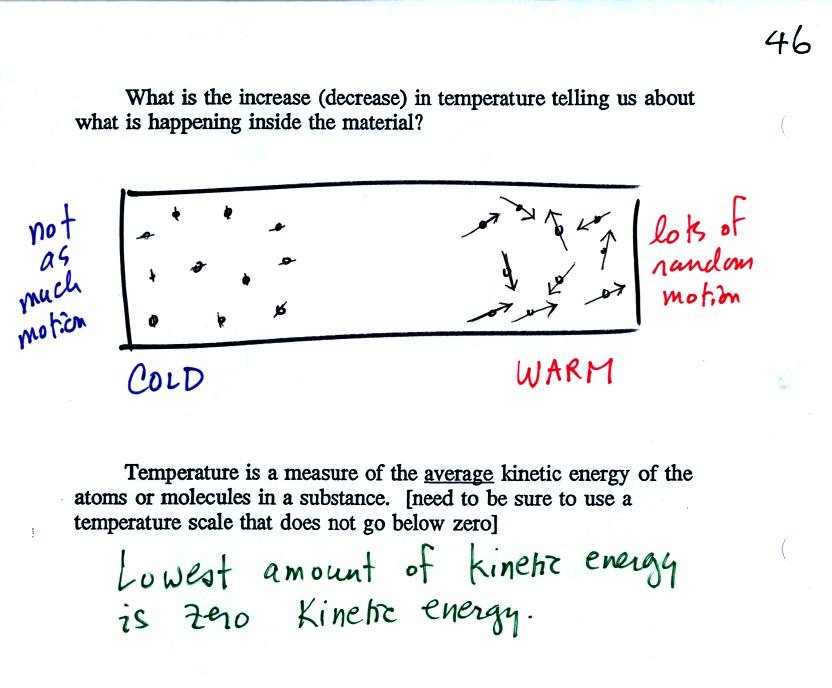 46
What is the increase (decrease) in temperature telling us about
what is happening inside the material?
not
as
much
motion
lots of
random
motion
COLD
WARM
Temperature is a measure of the average kinetic energy of the
atoms or molecules in a substance. [need to be sure to use a
temperature scale that does not go below zero]
Lowest amount of kinetic energy
is zero Kinetic energy.